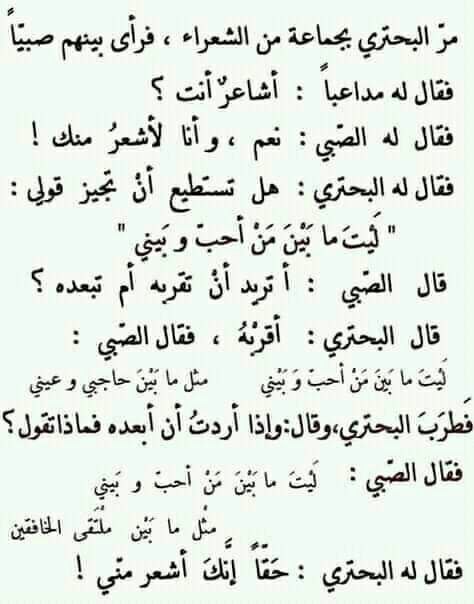 مرّ البحتري بجماعة من الشعراء ، فرأى بينهم صبيّاً
فقال له مداعباً : أشاعرٌ أنت ؟
فقال له الصّبي : نعم ، و أنا لأشعرُ منك !
فقال له البحتري : هل تستطيع أنْ تجيز قولي :
" لَيْتَ ما بَيْنَ مَنْ أحبّ و بَيني "
قال الصّبي : أ تريد أنْ تقربه أم تبعده ؟
قال البحتري : أقربْهُ ، فقال الصّبي :
لَيتَ ما بَينَ مَنْ أحبّ وَ بَيْني مثل ما بَيْنَ حاجبي و عيني
فَطرَبَ البحتري،وقال:وإذا أردتُ أن أبعده فماذاتقول؟
فقال الصّبي : لَيْتَ ما بَيْنَ مَنْ أحبّ و بَيني
مثْل ما بَيْن ملْتَقى الخافقين
فقال له البحتري : حَقّاً إنَّكَ أشعر منّي !